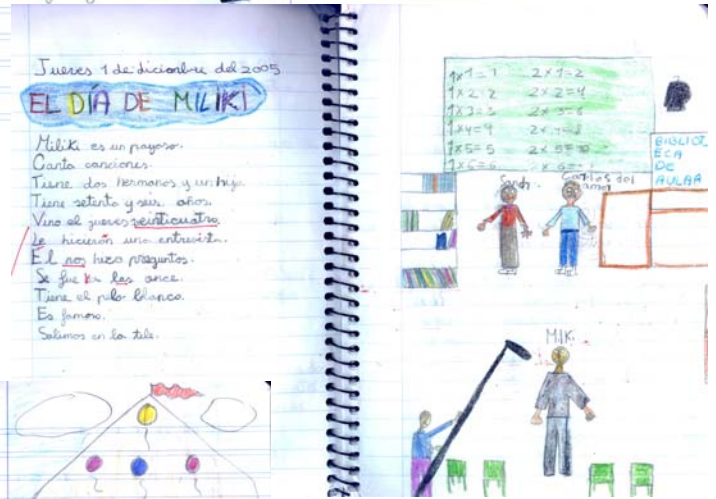 Jueves 1 de diciembre del 2005
EL DÍA DE MILIKI
Miliki es un payaso.
Canta canciones.
Tiene dos hermanos y un hijo.
Tiene setenta y seis años.
Vino el jueves veinticuatro.
Le hicieron una entrevista.
El nos hizo preguntas.
Se fue las once.
Tiene el pelo blanco.
Es famoso.
Salimos en la tele.
1x1=1 2x1=2
1x2=2 2x2=4
1x3=3 2x3=6
1x4=4 2x4=8
1x5=5 2x5=10
1x6=6
BIBLIOT
ECA
DE
AULA
Carlos del
MIK